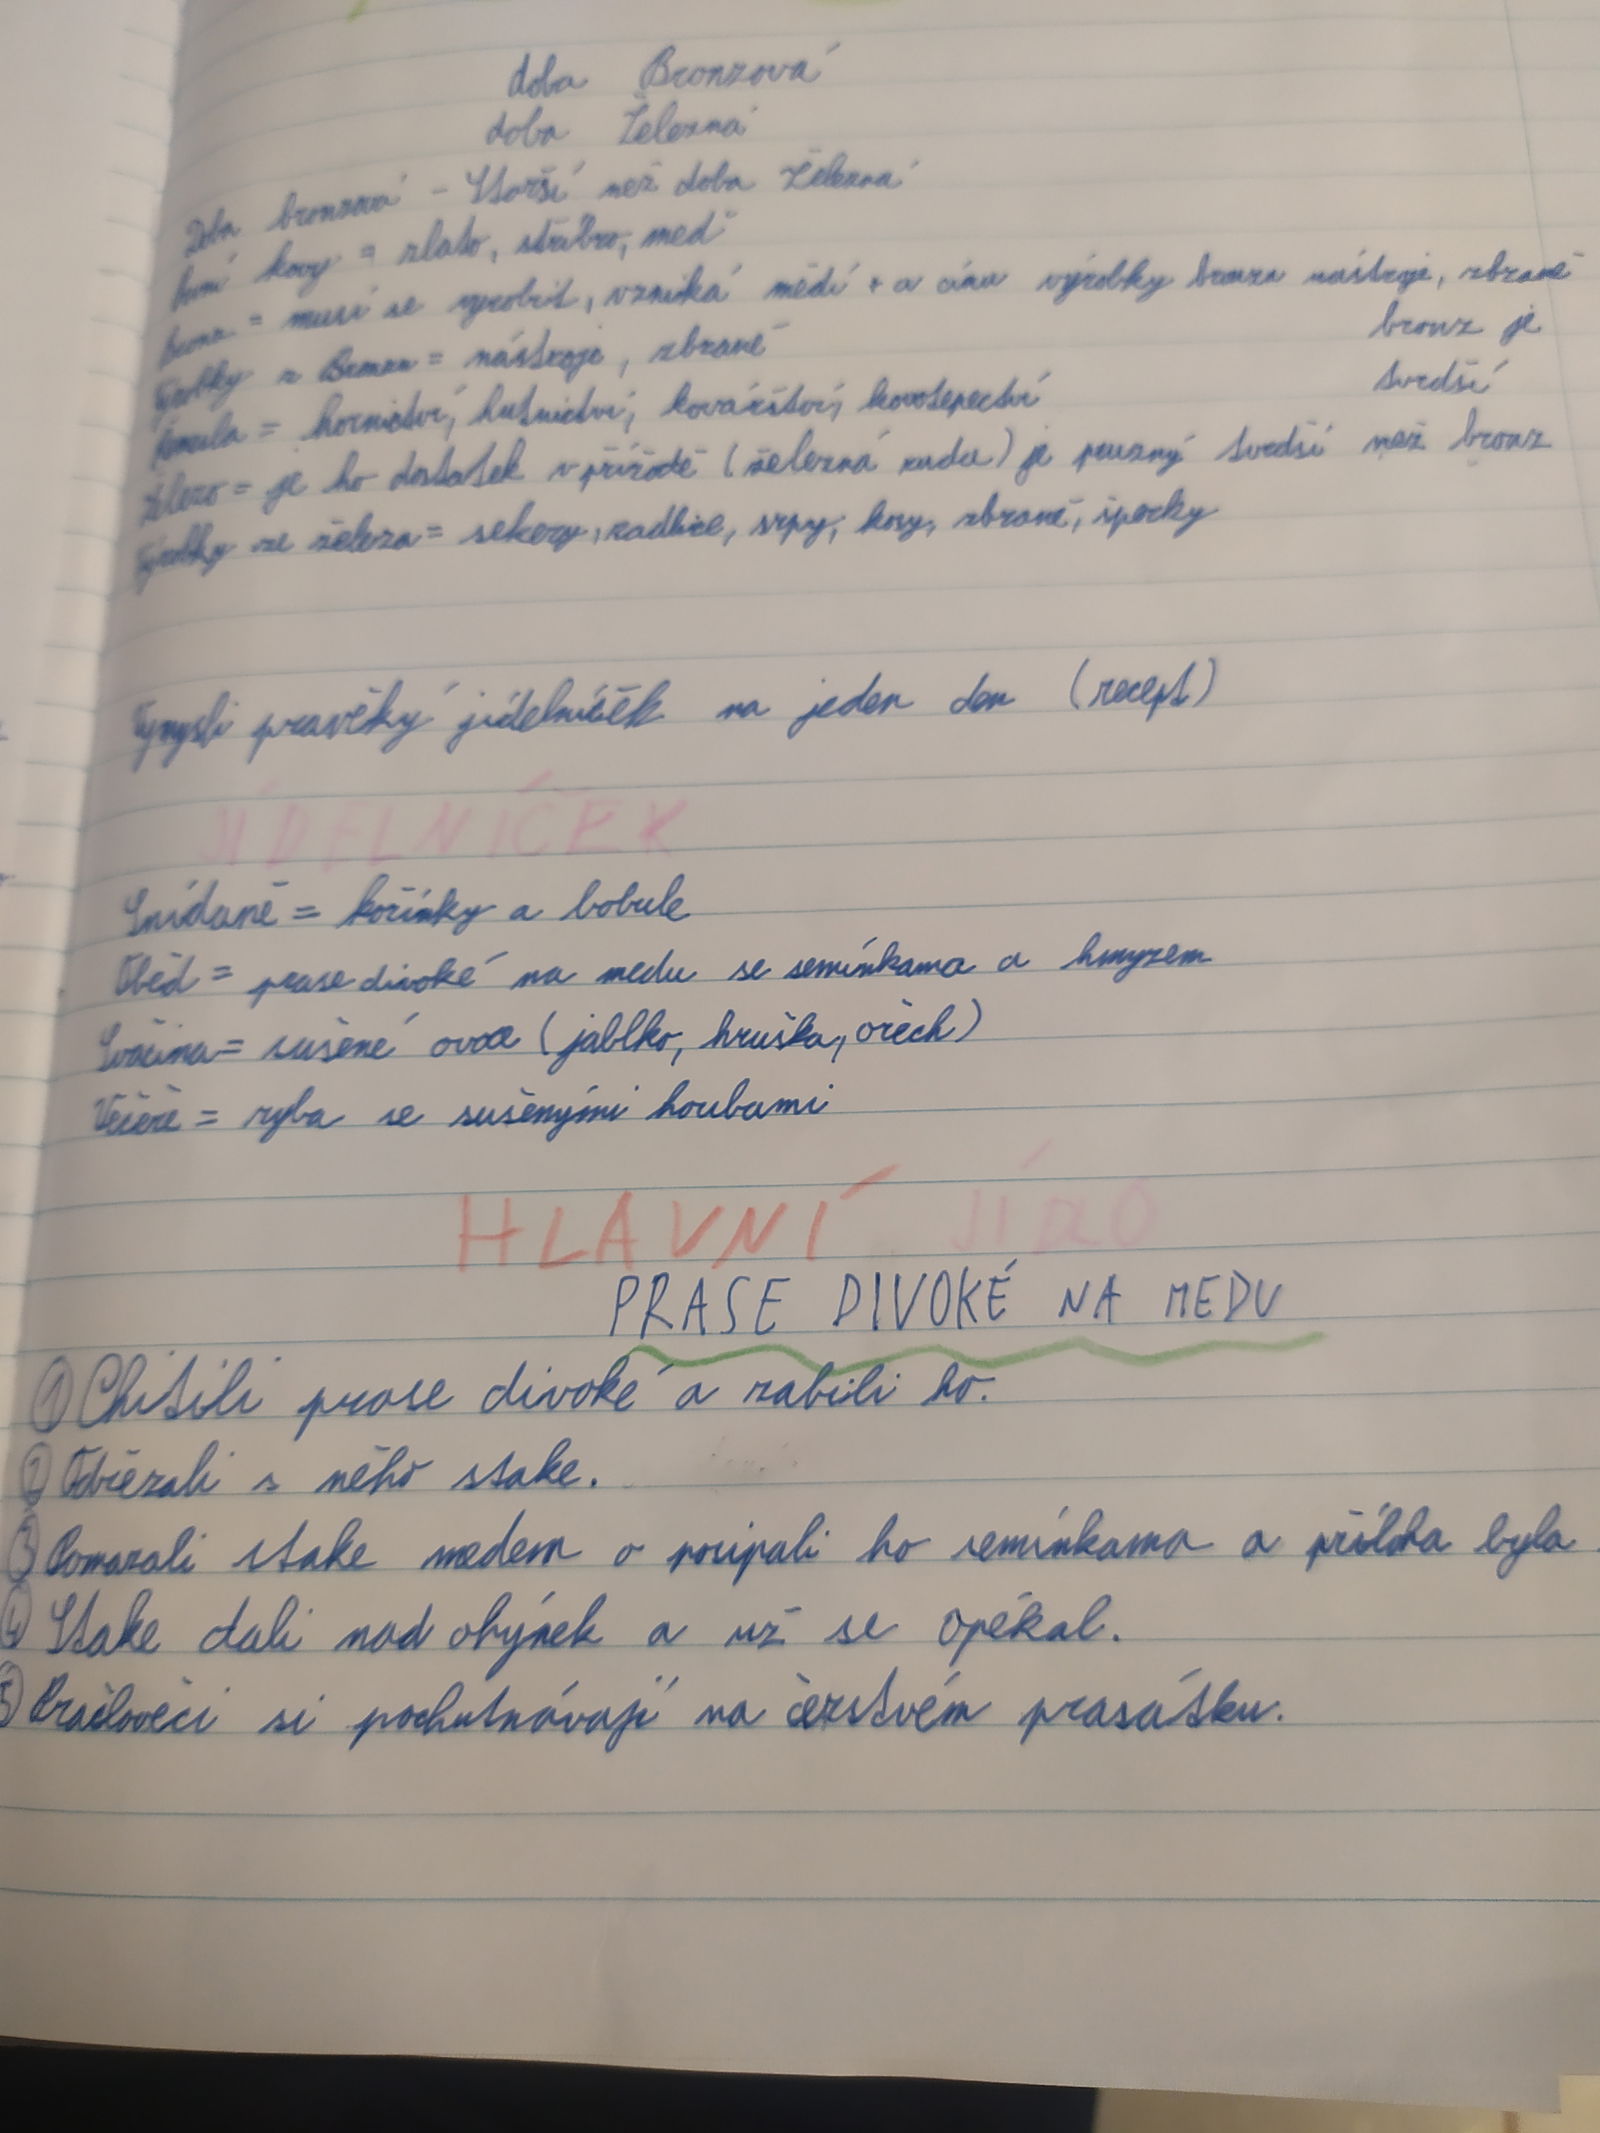 doba Bronzová
doba Železná
Doba bronzová - Starší než doba železná
kovy = zlato, stříbro, meď
Bronz = musí se vyrobit, vzniká mědí + a cínu výrobky bronzu nástroje, zbraně
bronz je
Výrobky z Bronzu = nástroje, zbraně
tvrdší
Řemesla = hornictví, hutnictví, kovářství, kovotepectví
Železo = je ho dostatek v přírodě (železná ruda) je pruzný tvrdší než bronz
Výrobky ze železa = sekery, radlice, srpy, kosy, zbraně, šperky
Vymysli pravěký jídelníčěk na jeden den (recept)
JÍDELNÍČEK
Snídaně = kořínky a bobule
Oběd = prase divoké na medu se semínkama a hmyzem
Svačina = sušené ovoce (jablko, hruška, ořech)
Večeře = ryba se sušenými houbami
HLAVNÍ JÍDLO
PRASE DIVOKÉ NA MEDU
① Chitili prase divoké a zabili ho.
② Odřezali s něho stake.
③ Pomazali stake medem a posipali ho semínkama a příloha byla
④ Stake dali nad ohýnek a už se opékal.
⑤ Pračlověci si pochutnávají na čerstvém prasátku.